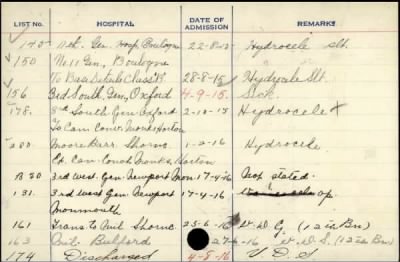 LIST No. HOSPITAL DATE OF ADMISSION REMARKS
140 11th. Gen. Hosp. Boulogne 22-8-15 Hydrocele slt.
150 No 11 Gen, Boulogne
To Base Details Class B. 28-8-15 Hydrocele Slt.
156 3rd South. Gen, Oxford 4-9-15 Sck
178. 3rd South Gen. Oxford 2-10-15 Hydrocele X
To Can. Conv. Monks Horton
280 Moore Barr. Shornc. 1-2-16 Hydrocele
Cd. Can. Conv. Monks Horton
B 30 3rd West. Gen. Newport Mon. 17-4-16 Not stated.
131. 3rd West Gen. Newport 17-4-16 op.
Monmouth
161 Trans to Mil Shornc 25-6-16 V. D. G. (12th Bn)
163 Mil. Bulford 27-6-16 V. D. S. (12th Bn)
174 Discharged 4-8-16 V D S